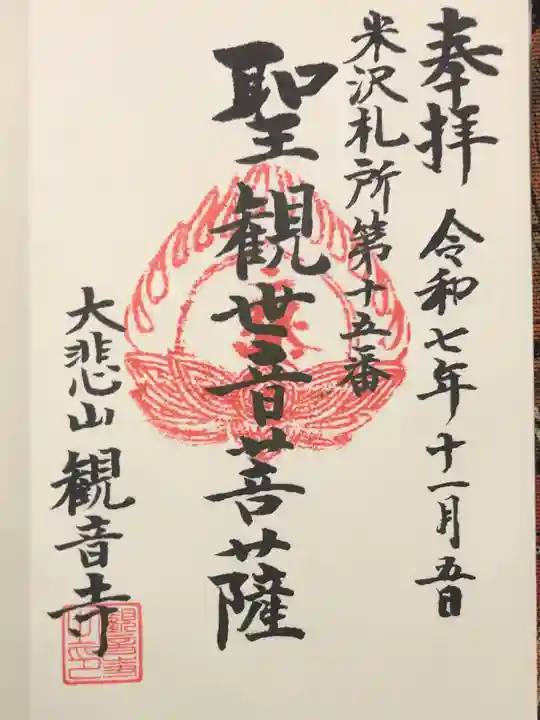 奉拝 令和七年十一月五日
米沢札所第十五番
聖観世音菩薩
大悲山観音寺